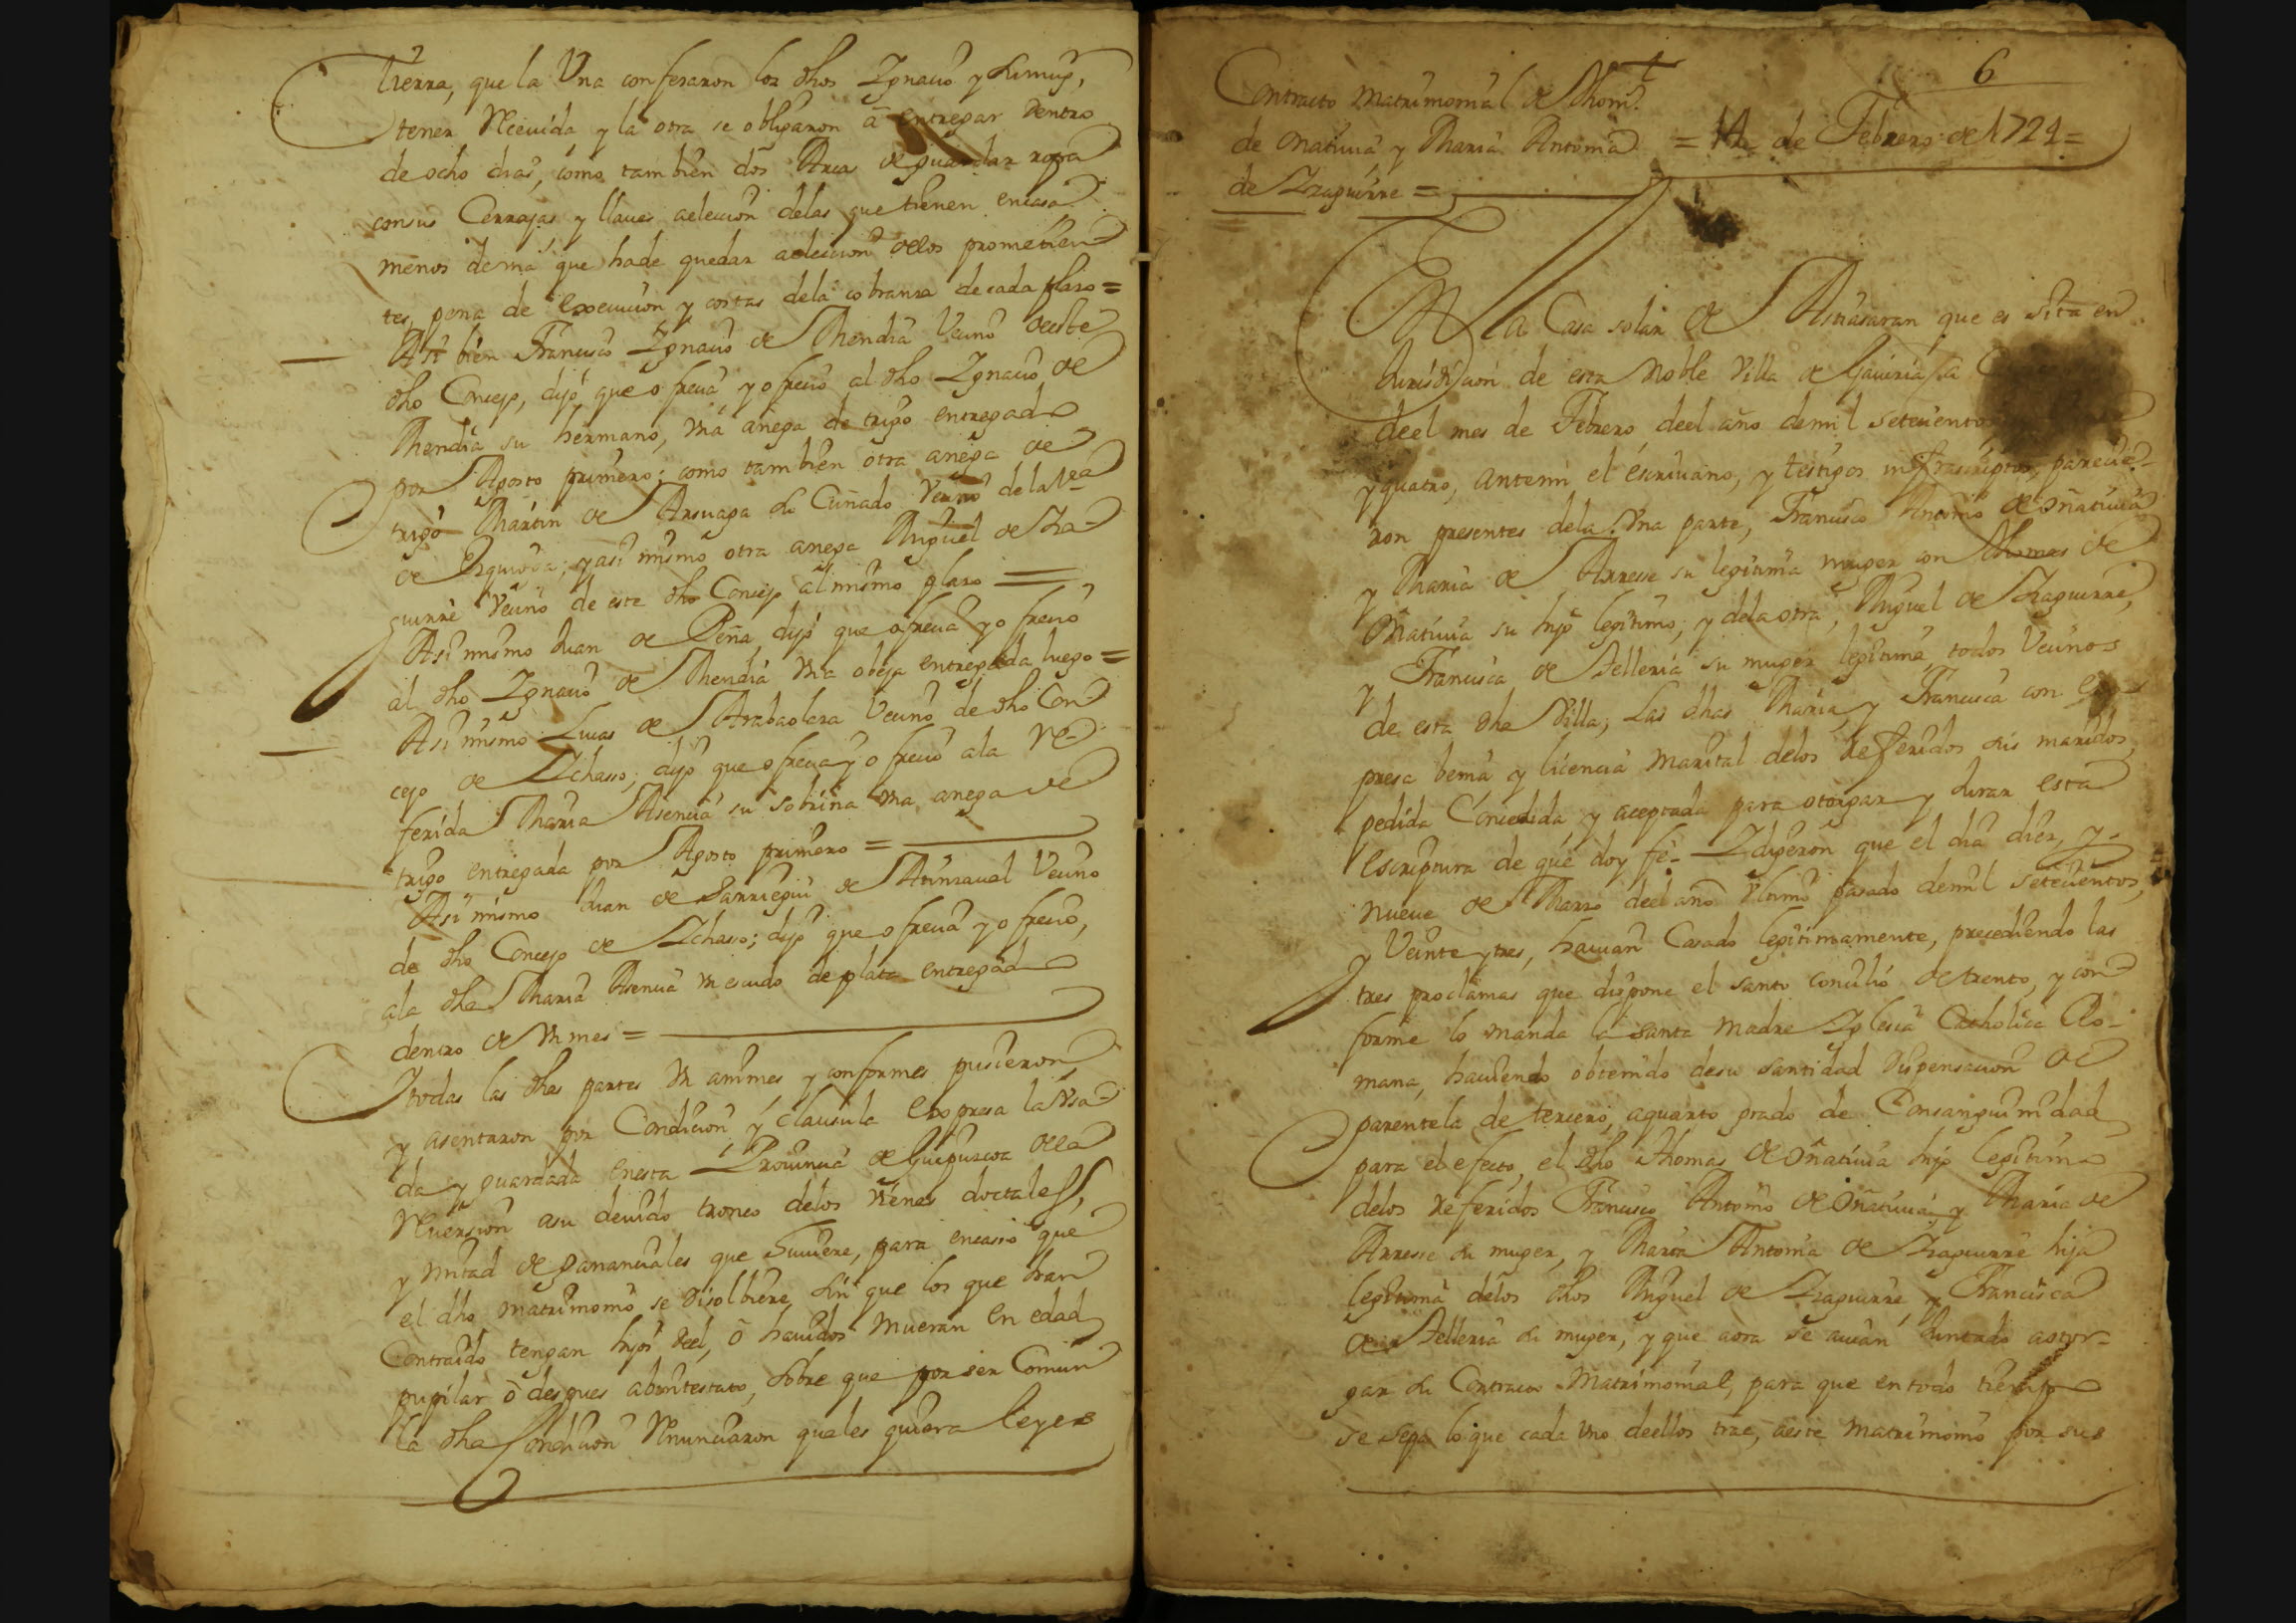 tierra, que la Una confesaron los dhos Ygnacio y su muger,
tener Recevida y la otra se obligaron â entregar dentro
de ocho dias, como tambien dos Arcas de guardar ropa
consus Cerrajas y llaues aeleccion delas que tienen encasa
menos dema que hade quedar aeleccion delos prometien-
tes, pena de execucion y costas dela cobranza de cada plazo =
Assi bien Francisco Ygnacio de Mendia Vecino deeste
dho Concejo, dijo que ofrecia y ofrecio al dho Ygnacio de
Mendia su hermano, vna anega de trigo entregada
por Agosto primero; como tambien otra anega de
trigo Martin de Arsuaga su Cuñado Vecino dela Vª
de Ezquioga; y asi mismo otra anega Miguel de Yza-
guirre Vecino de este dho Concejo al mismo plazo =
Asi mismo Juan de Peña, dijo que ofrecia y ofrecio
al dho Ygnacio de Mendia vna obeja entregada luego =
Asi mismo Lucas de Arabaolaza Vecino de dho Con-
cejo de Ychasso; dijo que ofrecia y ofrecio ala Re-
ferida Maria Asencia su sobrina vna anega de
trigo entregada por Agosto primero =
Asi mismo Juan de Sarriegui de Atinzaual Vecino
de dho Concejo de Ychasso; dijo que ofrecia y ofrecio,
ala dha Maria Asencia vn escudo de plata entregado
dentro de vn mes =
Y todas las dhas partes vn animes y conformes pusieron
y asentaron por Condicion y clausula expresa la vsa-
da y guardada enesta Prouincia de Guipuzcoa dela
Reuersion asu deuido tronco delos vienes doctales,
y mitad de gananciales que huuiere, para encaso que
el dho matrimonio se disolbiere, sin que los que han
Contraido tengan hijos deel, ô hauidos mueran en edad
pupilar ô despues abintestato, sobre que por ser Comun
la dha Condicion Renunciaron quales quiera leyes
6
Contracto Matrimonial de Thom.
de Oñativia y Maria Antonia = 14 de Febrero de 1724 =
de Yzaguirre =
En la Casa solar de Astiasaran que es sita en
Jurisdicion de esta Noble Villa de Gaviria, a
deel mes de Febrero deel año demil setecientos
y quatro, antemi el escriuano, y testigos infrascriptos, parecie-
ron presentes dela vna parte, Francisco Antonio de Oñativia
y Maria de Arrese su legitima muger con Thomas de
Oñativia su hijo legitimo; y dela otra, Miguel de Yzaguirre,
y Francisca de Telleria su muger legitima, todos Vecinos
de esta dha Villa; Las dhas Maria, y Francisca con ex-
presa benia y licencia Marital delos Referidos sus maridos,
pedida Concedida y aceptada para otorgar y Jurar esta
Escriptura de que doy fê. Y dijeron que el dia diez, y-
nueue de Marzo deel año vltimo pasado demil setecientos,
y Veinte y tres, hauian Casado legitimamente, precediendo las
tres proclamas que dispone el santo concilio de trento, y con-
forme lo manda la santa Madre Yglesia Catholica Ro-
mana, hauiendo obtenido desu santidad Dispensacion de
parentela de tercero, aquarto grado de Consanguinidad
para el efecto, el dho Thomas de Oñativia hijo legitimo
delos referidos Francisco Antonio de Oñativia, y Maria de
Arrese su muger, y Maria Antonia de Yzaguirre hija
legitima delos dhos Miguel de Yzaguirre, y Francisca
de Telleria su muger, y que aora se auian Juntado aotor-
gar su Contracto Matrimonial, para que en todo tiempo
se sepa loque cada vno deellos trae, aeste matrimonio por sus